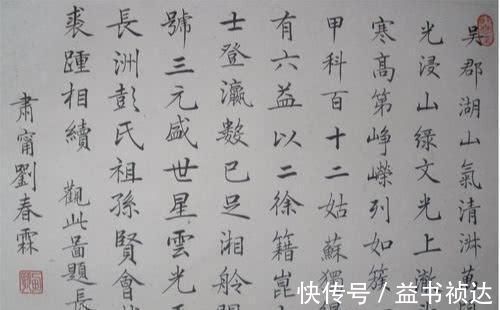 吳郡湖山氣清淑萬
光浸山綠文光上
寒高第崢嶸列如簇
甲科百十二姑蘇獨
有六益以二徐籍崑
士登瀛數已足湘舲
號三元盛世星雲光
長洲彭氏祖孫賢會
裘踵相續 觀此啚題長
肅甯劉春霖
快传号 / 益书祯达